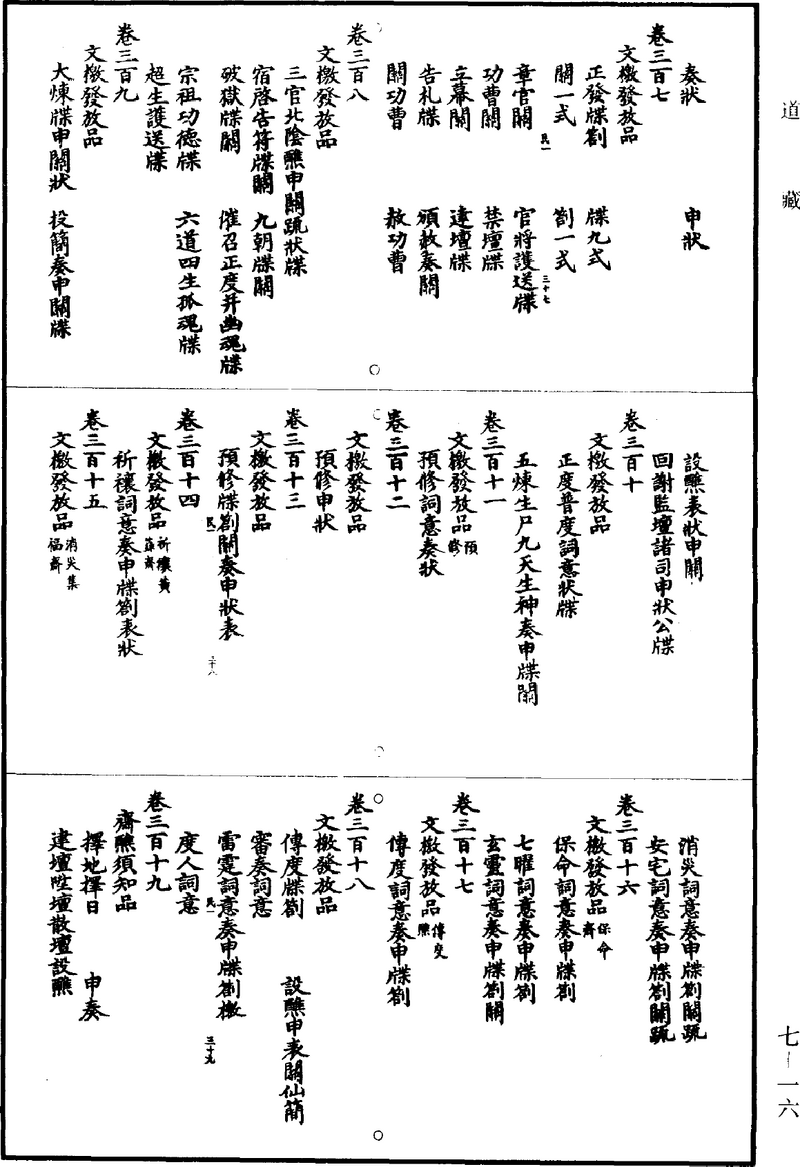 道藏
奏狀　申狀
卷三百七
文檄發放品
正發牒劄　牒九式
關一式　劄一式
章官關　官將護送牒
民一　三十七
功曹關　禁壇牒
立幕關　建壇牒
告札牒　頒赦奏關
關功曹　赦功曹
卷三百八
文檄發放品
三官北陰醮申關疏狀牒
宿啓告符牒關　九朝牒關
破獄牒關　催召正度并幽魂牒
宗祖功德牒　六道四生孤魂牒
超生護送牒
卷三百九
文檄發放品
大煉牒申關狀　投簡奏申關牒
設醮表狀申關
回謝監壇諸司申狀公牒
卷三百十
文檄發放品
正度普度詞意狀牒
五煉生尸九天生神奏申牒關
卷三百十一
文檄發放品預修
預修詞意奏狀
卷三百十二
文檄發放品
預修申狀
卷三百十三
文檄發放品
預修牒劄關奏申狀表
民一　三十八
卷三百十四
文檄發放品祈禳黃籙齋
祈禳詞意奏申牒劄表狀
卷三百十五
文檄發放品消災集福齋
消災詞意奏申牒劄關疏
安宅詞意奏申牒劄關疏
卷三百十六
文檄發放品保命齋
保命詞意奏申牒劄
七曜詞意奏申牒劄
玄靈詞意奏申牒劄關
卷三百十七
文檄發放品傳度醮
傳度詞意奏申牒劄
卷三百十八
文檄發放品
傳度牒劄　設醮申表關仙簡
審奏詞意
雷霆詞意奏申牒劄檄
民一　三十九
度人詞意
卷三百十九
齋醮須知品
擇地擇日　申奏
建壇陞壇散壇設醮
七—一六